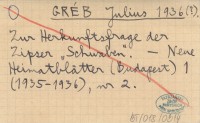 GRÉB Julius 1936(?).
Zur Herkunftsfrage der
Zipser „Schwaben". — Neue
Heimatblätter (Budapest) 1
(1935-1936), nr 2.